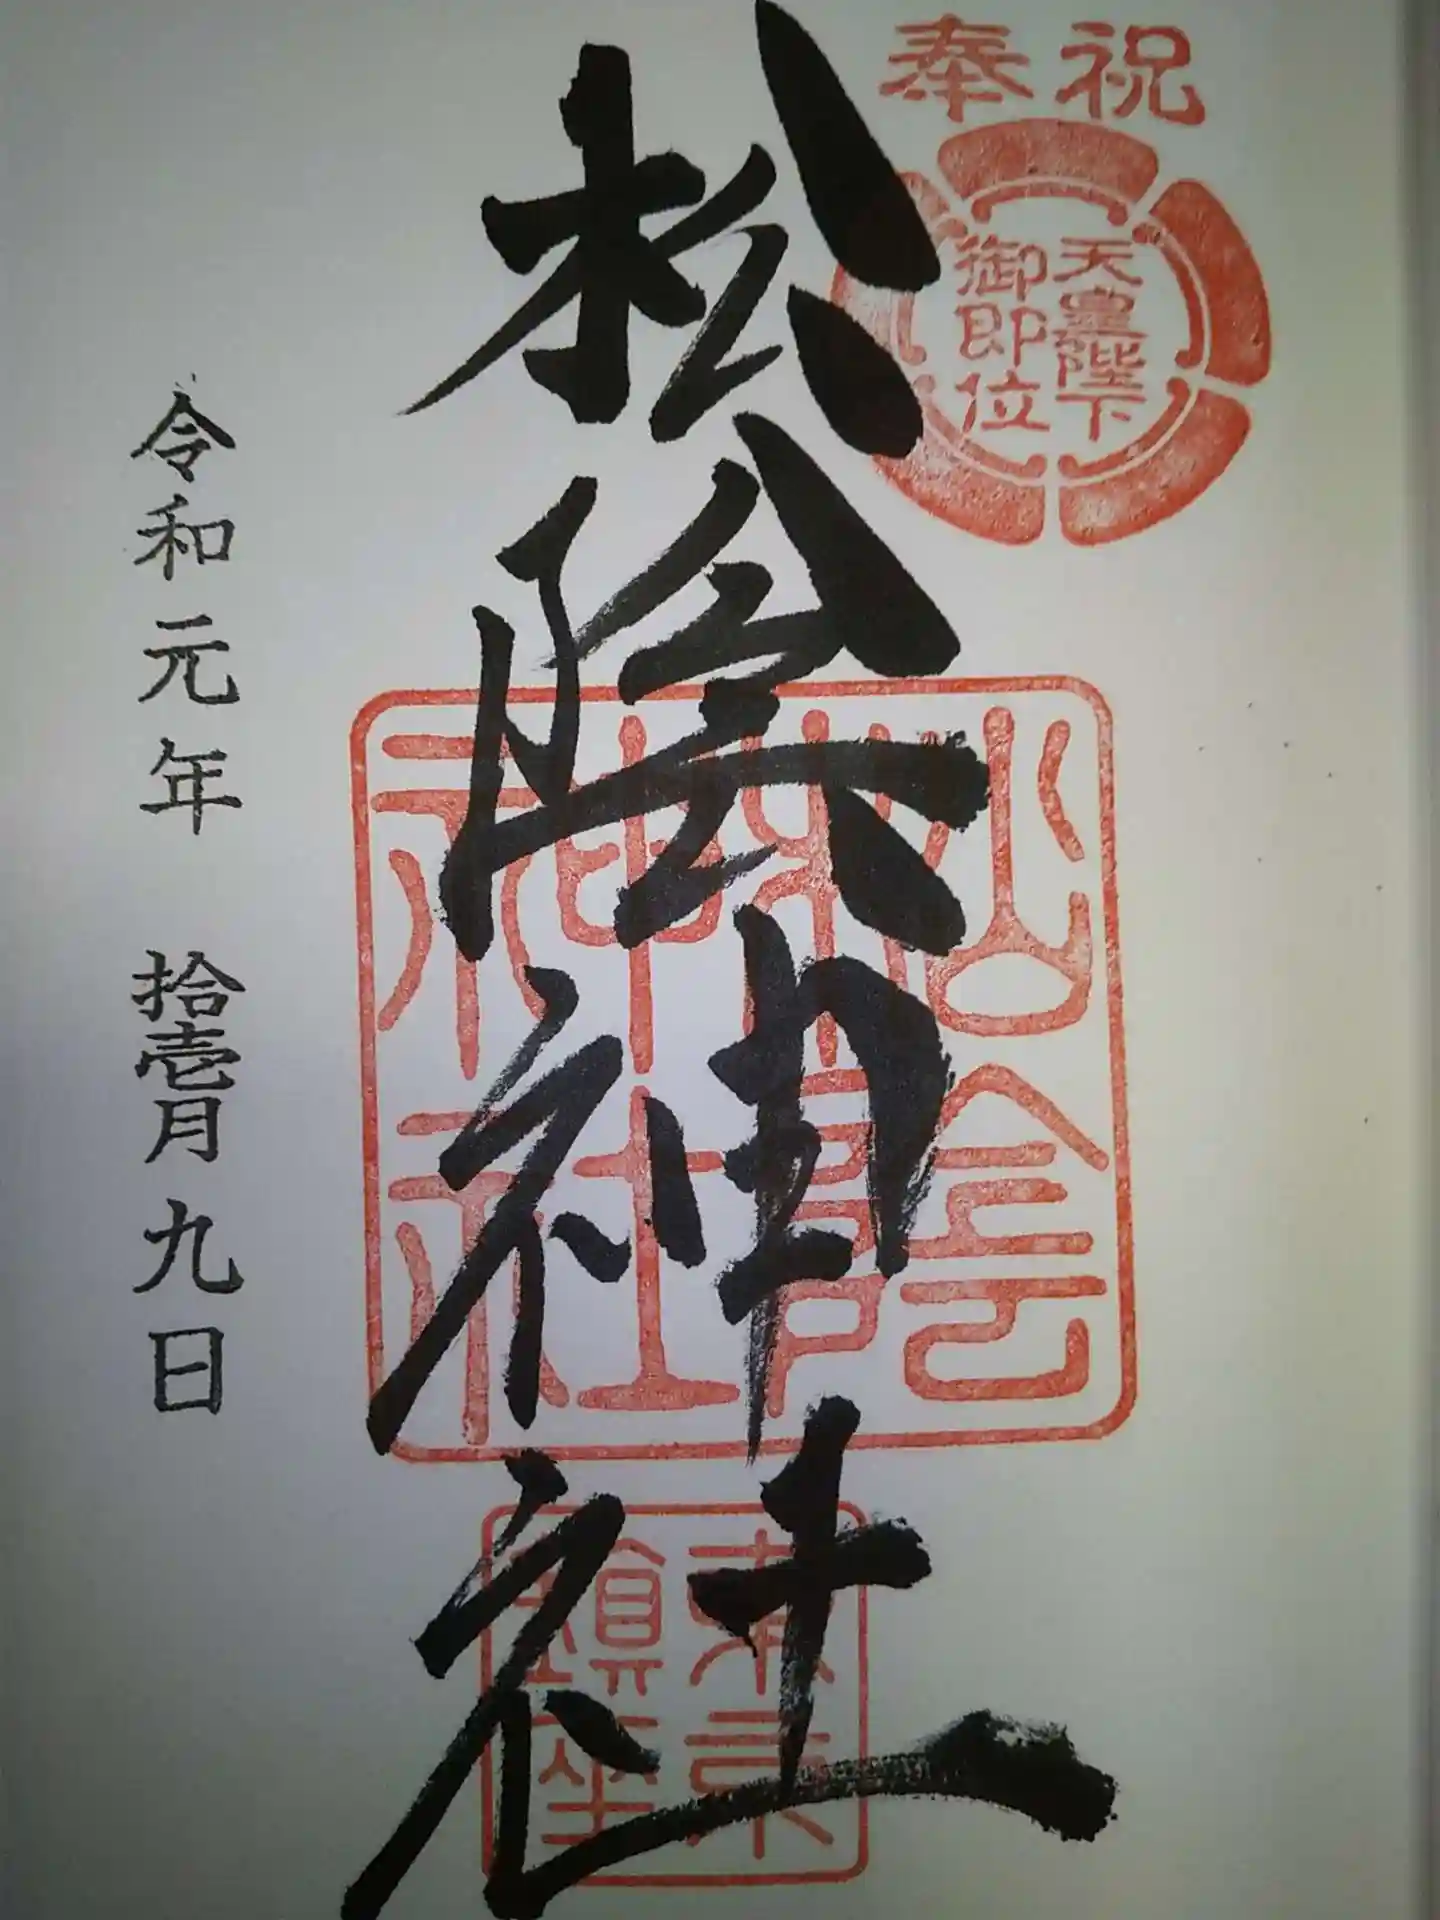 奉祝
天皇陛下
御即位
松陰神社
松陰
神社
東京
鎮座
令和元年 拾壱月九日